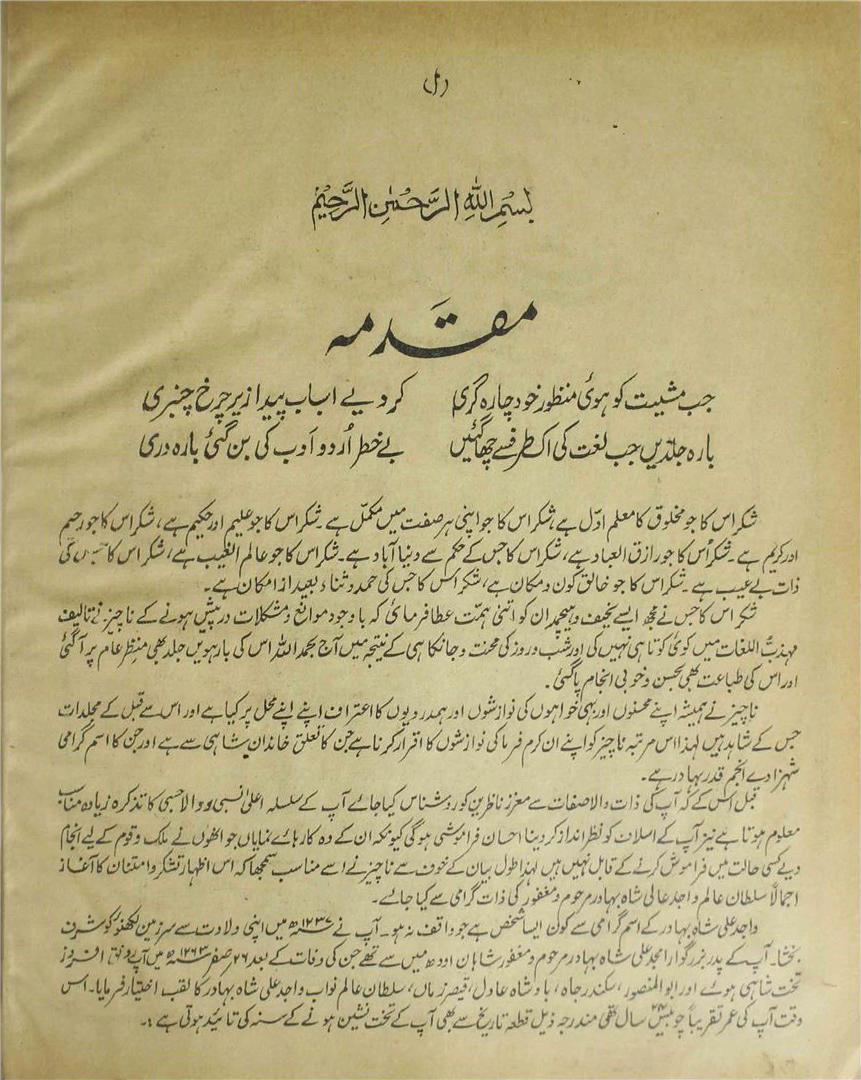 (ل)
بِسْمِ اللهِ الرَّحْمٰنِ الرَّحِيْمِ
مقدّمہ
جب مشیت کو ہوئی منظور خود چارہ گری کر دیے اسباب پیدا زیرِ چرخ چنبری
بارہ جلدیں جب لغت کی اک طرف سے چھا گئیں بے خطر اُردو ادب کی بن گئی بارہ دری
شکر اس کا جو مخلوق کا معلم اوّل ہے شکر اس کا جو اپنی ہر صفت میں مکمل ہے۔ شکر اس کا جو علیم اور حکیم ہے، شکر اس کا جو رحیم
اور کریم ہے۔ شکر اُس کا جو رازق العباد ہے، شکر اس کا جس کے حکم سے دنیا آباد ہے۔ شکر اس کا جو عالم الغیب ہے، شکر اس کا جس کی
ذات بے عیب ہے۔ شکر اس کا جو خالق کون و مکان ہے، شکر اس کا جس کی حمد و ثناء بعید از امکان ہے۔
شکر اس کا جس نے مجھ ایسے نحیف و ہیچمدان کو اتنی ہمت عطا فرمائی کہ باوجود موانع و مشکلات درپیش ہونے کے ناچیز نے تالیف
مہذب اللغات میں کوئی کوتاہی نہیں کی اور شب و روز کی محنت و جانکاہی کے نتیجہ میں آج بحمد اللہ اس کی بارہویں جلد بھی منظرِ عام پر آ گئی
اور اس کی طباعت بھی بحسن و خوبی انجام پا گئی۔
ناچیز نے ہمیشہ اپنے محسنوں اور بہی خواہوں کی نوازشوں اور ہمدردیوں کا اعتراف اپنے اپنے محل پر کیا ہے اور اس سے قبل کے مجلدات
جس کے شاہد ہیں لہذا اس مرتبہ ناچیز کو اپنے ان کرم فرما کی نوازشوں کا اقرار کرنا ہے جن کا تعلق خاندان شاہی سے ہے اور جن کا اسم گرامی
شہزادے انجم قدر بہادر ہے۔
قبل اس کے کہ آپ کی ذات والا صفات سے معزز ناظرین کو روشناس کیا جائے آپ کے سلسلہ اعلیٰ نسبی و والا حسبی کا تذکرہ زیادہ مناسب
معلوم ہوتا ہے نیز آپ کے اسلاف کو نظر انداز کر دینا احسان فراموشی ہوگی کیونکہ ان کے وہ کارہائے نمایاں جو انھوں نے ملک و قوم کے لیے انجام
دیے کسی حالت میں فراموش کرنے کے قابل نہیں ہیں لہذا طول بیان کے خوف سے ناچیز نے اسے مناسب سمجھا کہ اس اظہار تشکر و امتنان کا آغاز
اجمالاً سلطان عالم واجد علی شاہ بہادر مرحوم و مغفور کی ذات گرامی سے کیا جائے۔
واجد علی شاہ بہادر کے اسم گرامی سے کون ایسا شخص ہے جو واقف نہ ہو۔ آپ نے ۱۲۳۷ھ میں اپنی ولادت سے سرزمین لکھنؤ کو شرف
بخشا۔ آپ کے پدر بزرگوار امجد علی شاہ بہادر مرحوم و مغفور شاہان اودھ میں سے تھے جن کی وفات کے بعد ۲۶ صفر ۱۲۶۳ھ میں آپ رونق افروز
تخت شاہی ہوئے اور ابوالمنصور، سکندر جاہ، بادشاہ عادل، قیصر زماں، سلطان عالم نواب واجد علی شاہ بہادر کا لقب اختیار فرمایا۔ اس
وقت آپ کی عمر تقریباً چوبیس ۲۴ سال تھی مندرجہ ذیل قطعہ تاریخ سے بھی آپ کے تخت نشین ہونے کے سنہ کی تائید ہوتی ہے :۔